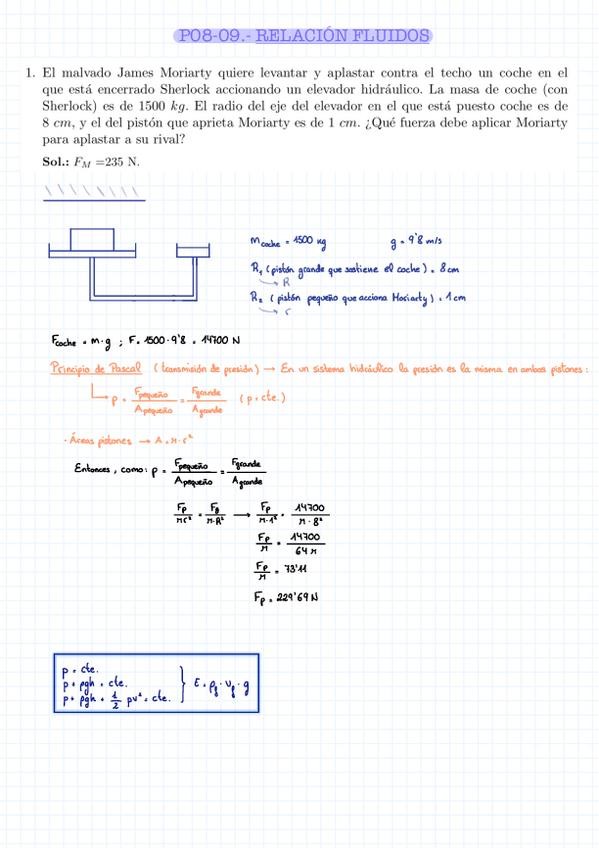 P08-09.- RELACIÓN FLUIDOS
1. El malvado James Moriarty quiere levantar y aplastar contra el techo un coche en el
que está encerrado Sherlock accionando un elevador hidráulico. La masa de coche (con
Sherlock) es de 1500 kg. El radio del eje del elevador en el que está puesto coche es de
8 cm, y el del pistón que aprieta Moriarty es de 1 cm. ¿Qué fuerza debe aplicar Moriarty
para aplastar a su rival?
Sol.: F_M =235 N.
m coche = 1500 kg g = 9'8 m/s
R₁ (pistón grande que sostiene el coche) = 8 cm
→ R
R₂ (pistón pequeño que acciona Moriarty) = 1 cm
→ r
Fcoche = m·g ; F = 1500·9'8 = 14700 N
Principio de Pascal (transmisión de presión) → En un sistema hidráulico la presión es la misma en ambos pistones:
p = Fpequeño/Apequeño = Fgrande/Agrande (p = cte.)
· Áreas pistones → A = π·r²
Entonces, como: p = Fpequeño/Apequeño = Fgrande/Agrande
Fp/πr² = Fg/π·R² → Fp/π·1² = 14700/π·8²
Fp/π = 14700/64π
Fp/π = 73'11
Fp = 229'69 N
p = cte.
p + ρgh = cte.
p + ρgh + 1/2 ρv² = cte.
} E = ρf · Vf · g